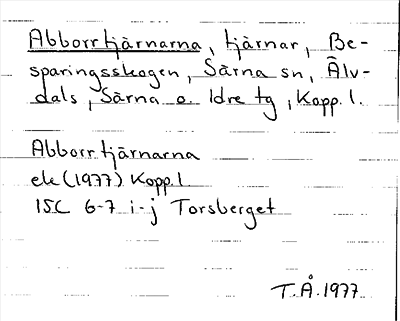 Abborrtjärnarna, tjärnar, Be-
sparingsskogen, Särna sn, Älv-
dals, Särna o. Idre tg, Kopp. l.
Abborrtjärnarna
ek (1977) Kopp. l
15C 6-7 i-j Torsberget
T.Å. 1977